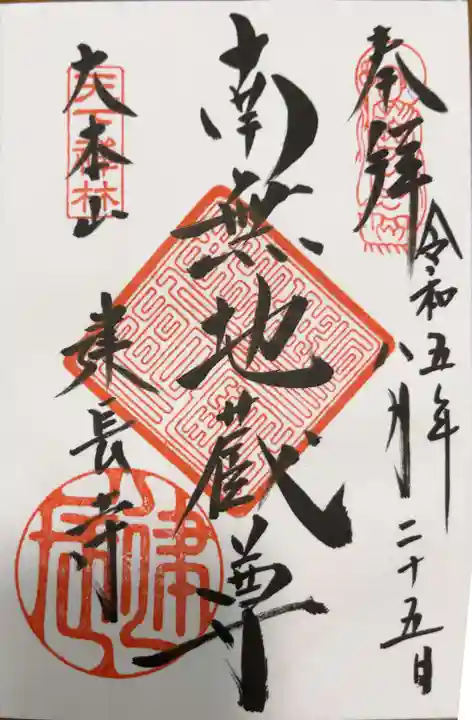 奉拝
令和五年八月二十五日
南無地蔵尊
天下禅林
大本山
建長寺
建長